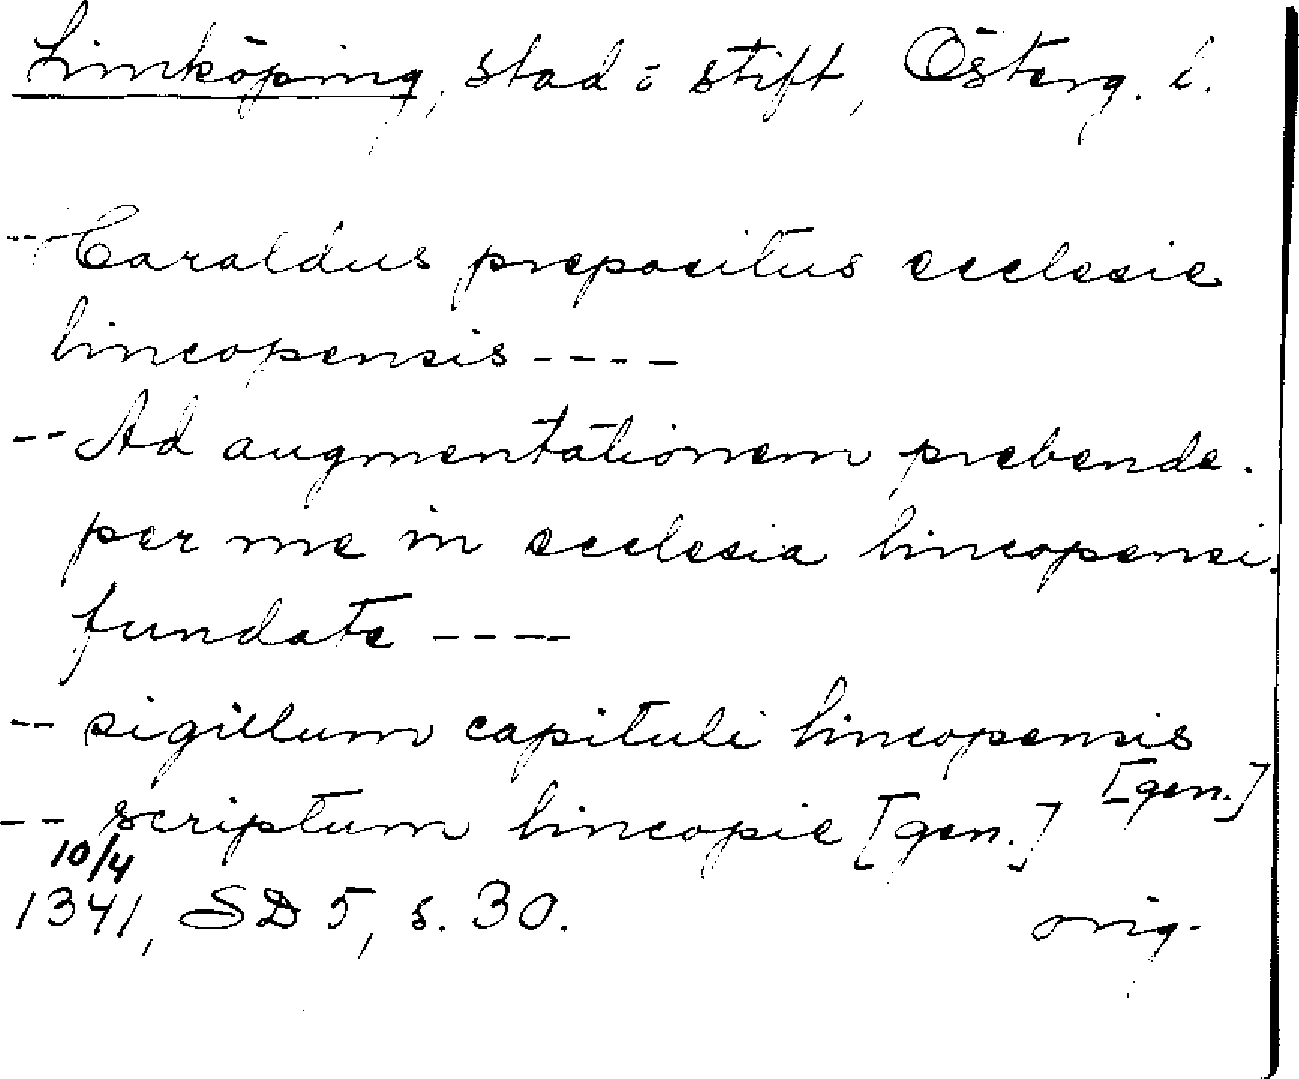 Linköping, stad o stift, Österg. l.
-- Caraldus prepositus ecclesie
lincopensis ----
-- Ad augmentationem prebende.
per me in ecclesia lincopensi.
fundate ----
-- sigillum capituli lincopensis
[gen.]
-- scriptum lincopie [gen.]
10/4
1341, SD 5, s. 30. orig.